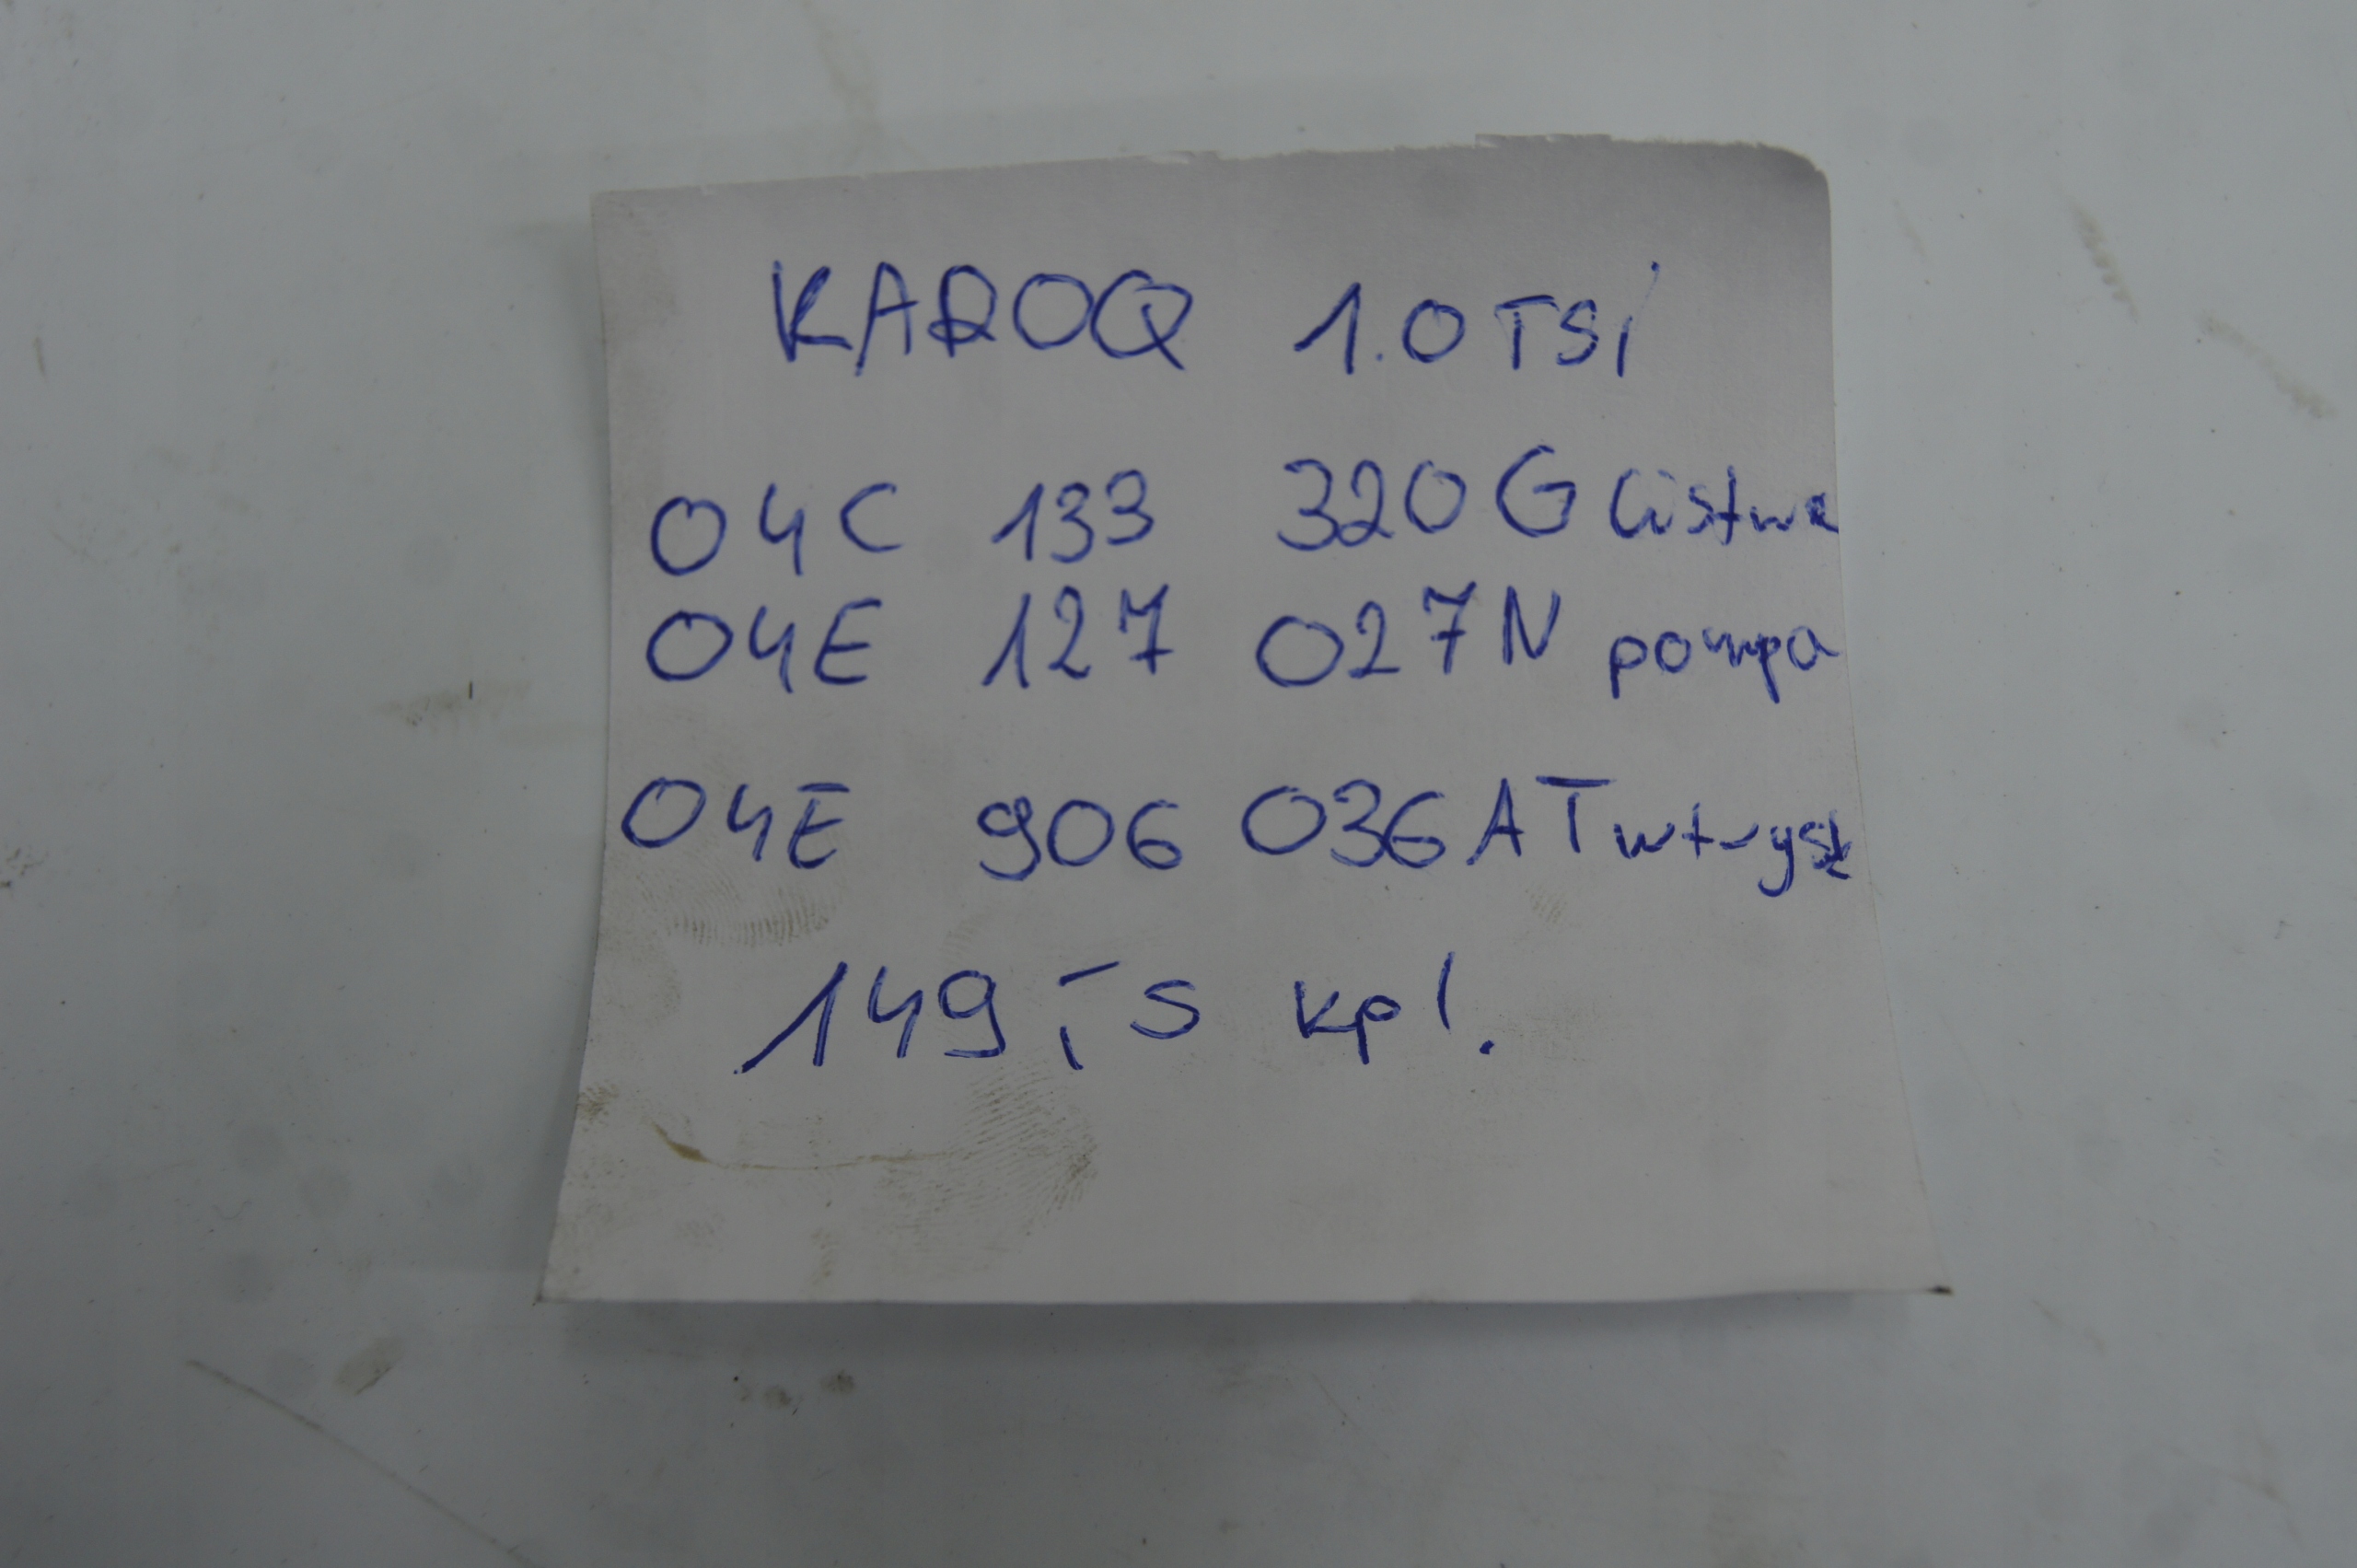 KAROQ 1.0 TSi
04C 133 320 G listwa
04E 127 027 N pompa
04E 906 036 AT wtrysk
149,-s kpl.